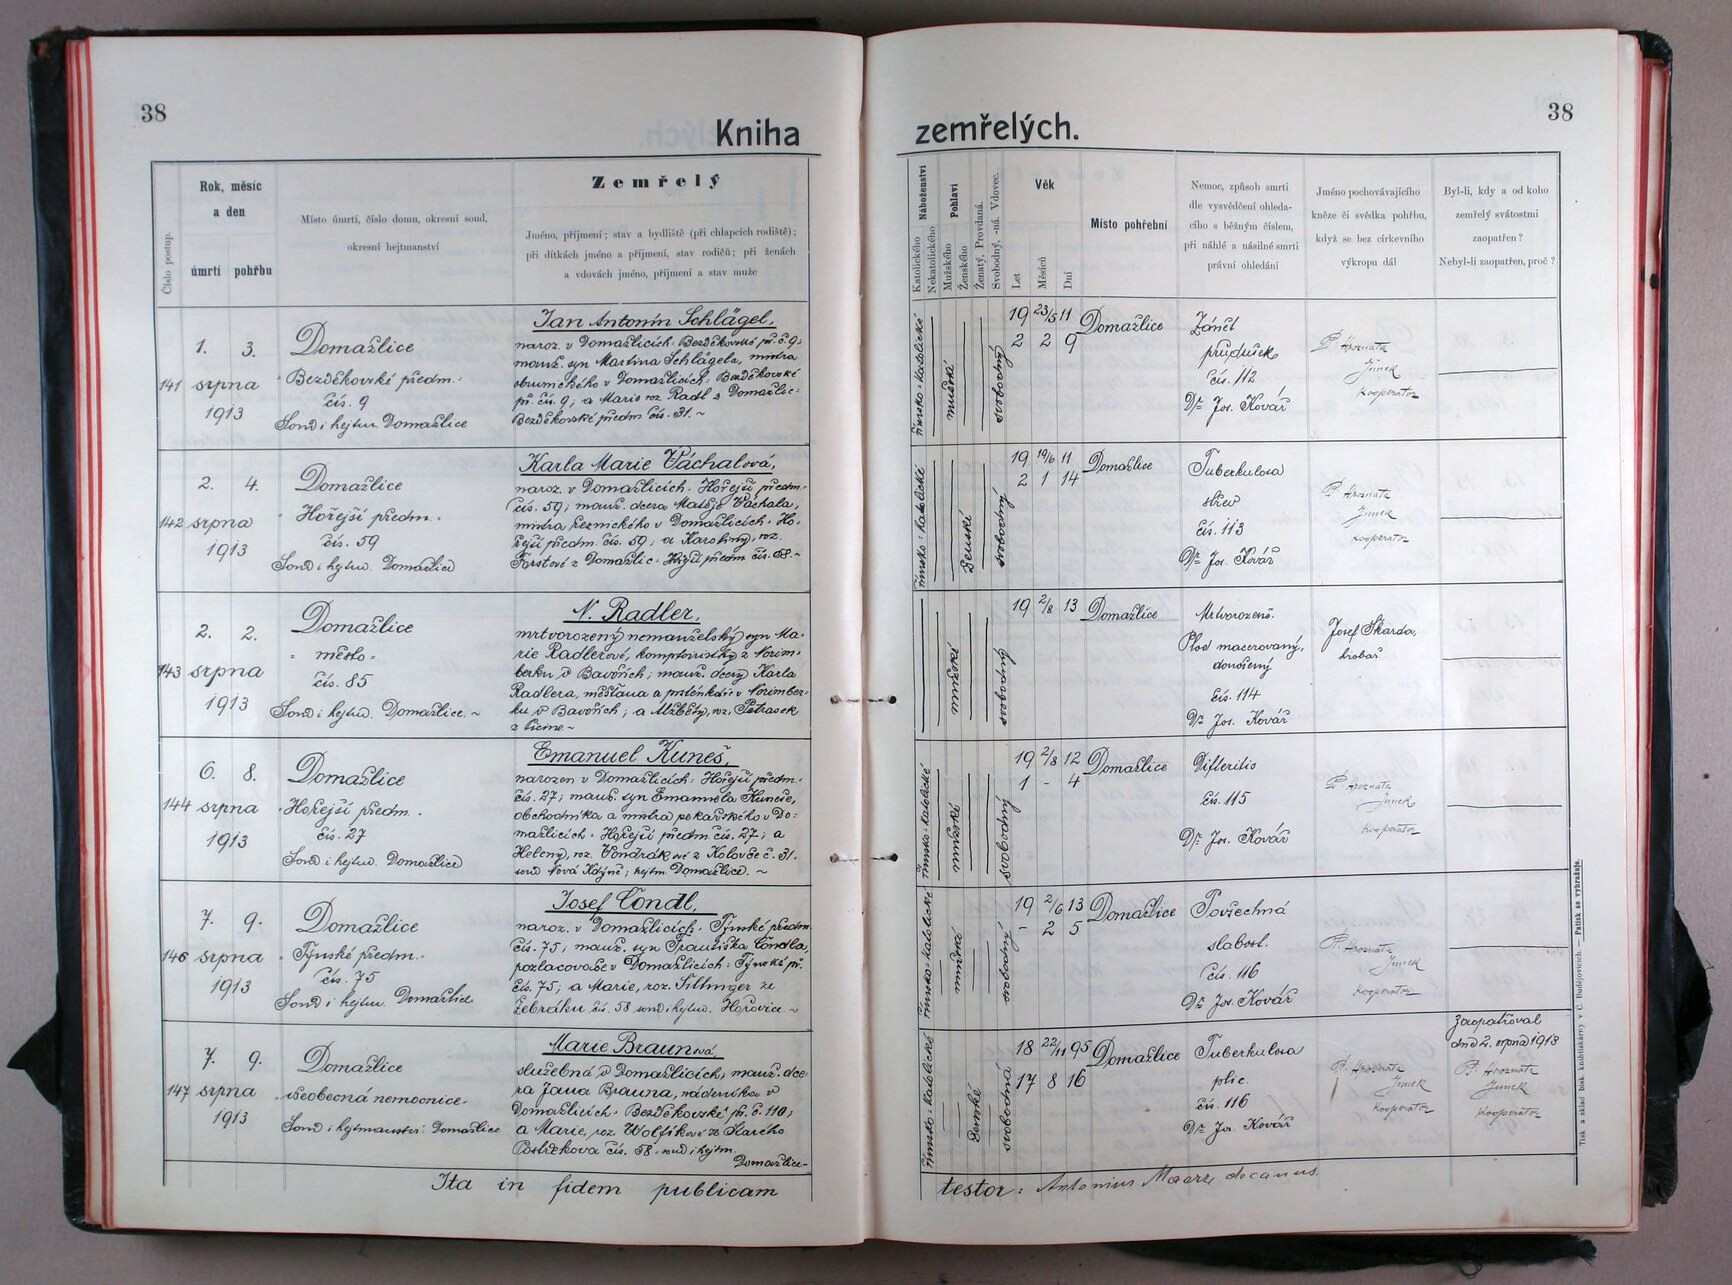 38
38
Kniha
zemřelých.
Číslo postup.
Rok, měsíc
a den
úmrtí pohřbu
Místo úmrtí, číslo domu, okresní soud,
okresní hejtmanství
Zemřelý
Jméno, příjmení; stav a bydliště (při chlapcích rodiště);
při dítkách jméno a příjmení, stav rodičů; při ženách
a vdovách jméno, příjmení a stav muže
Náboženství
Katolického
Nekatolického
Pohlaví
Mužského
Ženského
Ženatý, Provdaná.
Svobodný, -ná. Vdovec.
Věk
Let
Měsíců
Dní
Místo pohřební
Nemoc, způsob smrti
dle vysvědčení ohleda-
cího s běžným číslem,
při náhlé a násilné smrti
právní ohledání
Jméno pochovávajícího
kněze či svědka pohřbu,
když se bez církevního
výkropu dál
Byl-li, kdy a od koho
zemřelý svátostmi
zaopatřen?
Nebyl-li zaopatřen, proč?
141
1. 3.
srpna
1913
Domažlice
Bezděkovské předm.:
čís. 9
Soud i hejtm. Domažlice
Jan Antonín Schlägel,
naroz. v Domažlicích Bezděkovské př. č. 9;
manž. syn Martina Schlägela, mistra
obuvnického v Domažlicích: Bezděkovské
př. čís. 9; a Marie roz. Radl z Domažlic:
Bezděkovské předm čís. 31. ~
římsko-katolické
mužské
svobodný
19 23/5 11
2 2 9
Domažlice
Zánět
průdušek
čís. 112
Dr. Jos. Kovář
P. Hroznata
Junek
kooperator
142
2. 4.
srpna
1913
Domažlice
Hořejší předm.
čís. 59
Soud i hejtm. Domažlice
Karla Marie Váchalová,
naroz. v Domažlicích. Hořejší předm.
čís. 59; manž. dcera Matěje Váchala,
mistra řeznického v Domažlicích. Ho-
řejší předm. čís. 59; a Karoliny, roz.
Forstové z Domažlic. Hořejší předm čís. 68. ~
římsko-katolické
Ženské
svobodný
19 19/6 11
2 1 14
Domažlice
Tuberkulosa
střev
čís. 113
Dr. Jos. Kovář
P. Hroznata
Junek
kooperator
143
2. 2.
srpna
1913
Domažlice
město
čís. 85
Soud i hejtm. Domažlice. ~
N. Radler,
mrtvorozený nemanželský syn Ma-
rie Radlerové, komptoiristky z Norim-
berku v Bavořích; manž. dcery Karla
Radlera, měšťana a prsténkáře v Norimber-
ku v Bavořích; a Alžběty, roz. Petrasek
mužské
svobodný
19 2/8 13
Domažlice
Mrtvorozené.
Plod macerovaný,
donošený
čís. 114
Dr. Jos. Kovář
Josef Škarda,
hrobař
144
6. 8.
srpna
1913
Domažlice
Hořejší předm.
čís. 27
Soud i hejtm. Domažlice
Emanuel Kuneš,
narozen v Domažlicích: Hořejší předm.
čís. 27; manž. syn Emanuela Kuneše,
obchodníka a mistra pekařského v Do-
mažlicích: Hořejší předm čís. 27; a
Heleny, roz. Vondrákové z Koloveč č. 31.
soud Nová Kdyně; hejtm Domažlice. ~
římsko-katolické
mužské
svobodný
19 2/8 12
1 - 4
Domažlice
Difteritis
čís. 115
Dr. Jos. Kovář
P. Hroznata
Junek
kooperator
146
7. 9.
srpna
1913
Domažlice
Týnské předm.
čís. 75
Soud i hejtm. Domažlice
Josef Cöndl,
naroz. v Domažlicích. Týnské předm
čís. 75; manž. syn Františka Cöndla,
pozlacovače v Domažlicích: Týnské př.
čís. 75; a Marie, roz. Siltinger ze
Žebráku čís. 58 soud i hejtm. Hořovice. ~
římsko-katolické
mužské
svobodný
19 2/6 13
- 2 5
Domažlice
Povšechná
slabost.
čís. 116
Dr. Jos. Kovář
P. Hroznata
Junek
kooperator
147
7. 9.
srpna
1913
Domažlice
všeobecná nemocnice
Soud i hejtmanství Domažlice
Marie Braunová
služebná v Domažlicích; manž. dce-
ra Jana Brauna, nádeníka v
Domažlicích. Bezděkovské př. č. 110;
a Marie, roz. Wolfíkové ze Starého
Postřekova čís. 58 soud i hejtm.
Domažlice
římsko-katolické
ženské
svobodná
18 22/11 95
17 8 16
Domažlice
Tuberkulosa
plic.
čís. 116
Dr. Jos. Kovář
P. Hroznata
Junek
kooperator
Zaopatřoval
dne 2. srpna 1913
P. Hroznata
Junek
kooperator
Ita in fidem publicam
testor: Antonius Maars decanus.
Tisk a sklad bisk. knihtiskárny v Č. Budějovicích. — Patisk se vyhražuje.